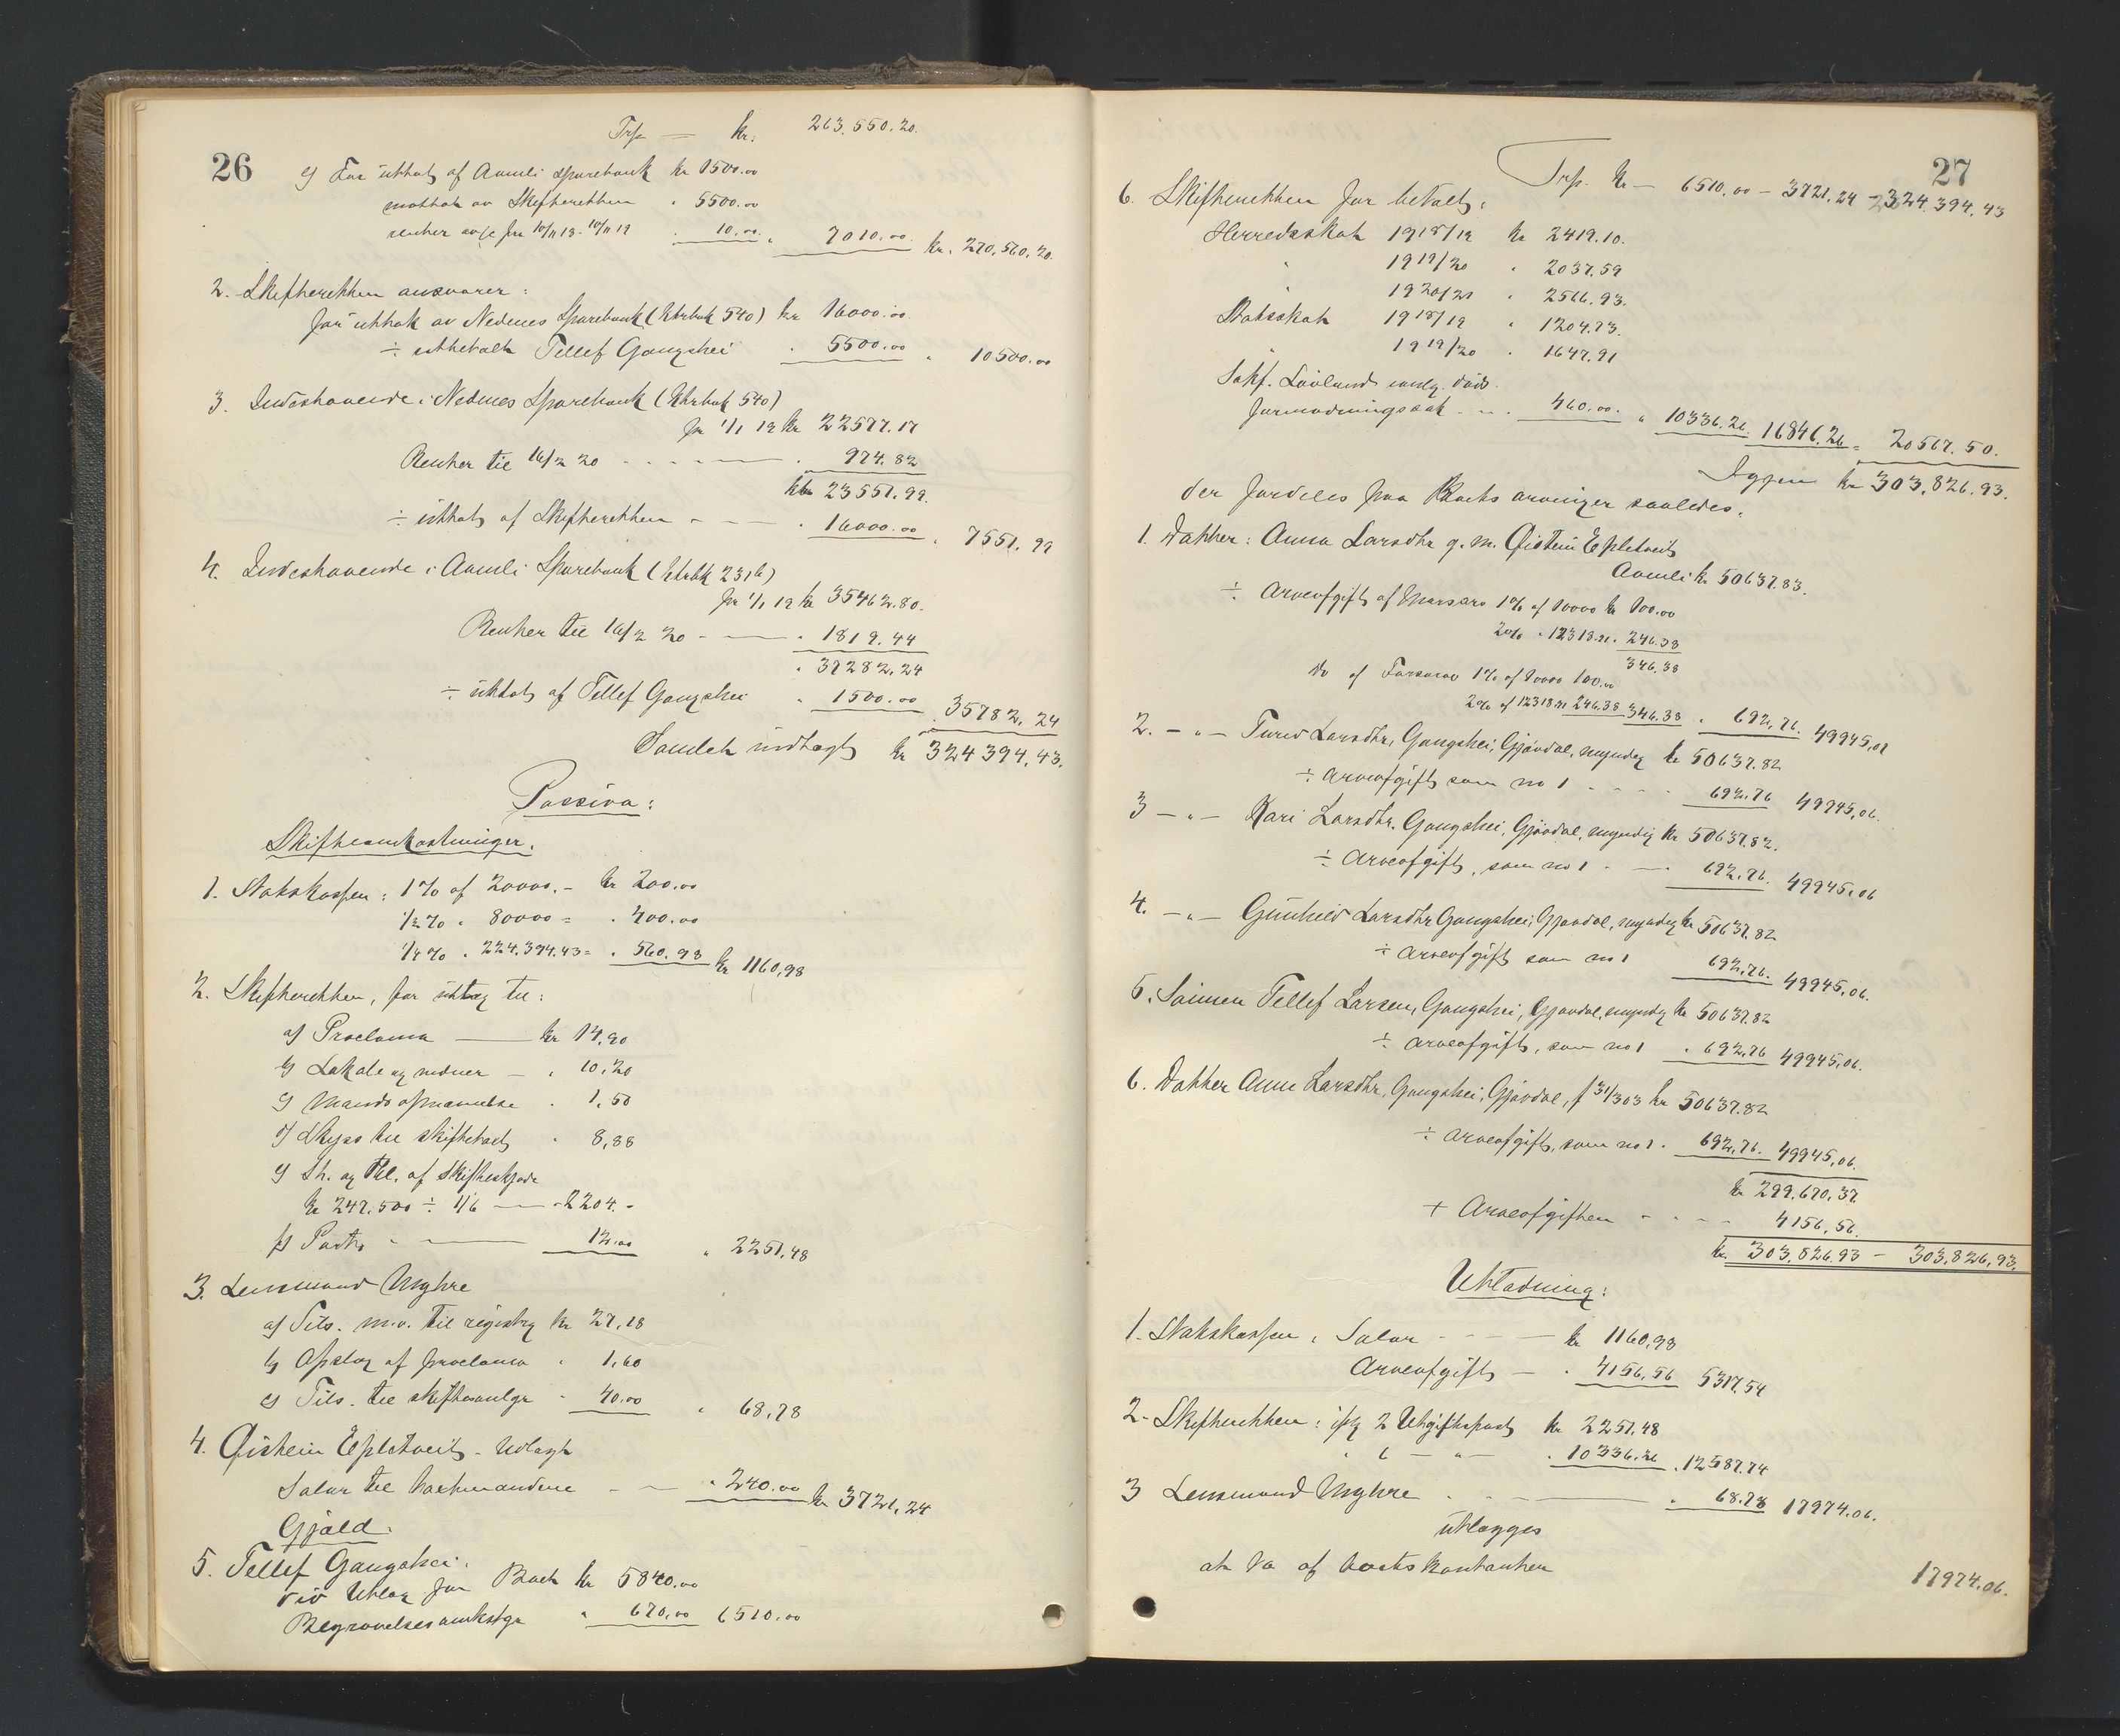 26
Trsp — kr: 263.550.20.
c) For uttat af Aamli sparebank kr 1500.00
mottat av Skifteretten " 5500.00
renter av/c fra 10/11 18 - 10/11 19 " 10.00 " 7010.00 kr. 270,560,20.
2. Skifteretten ansvarer:
for uttak av Nedenes Sparebank (Ktrbok 540) kr 16000.00
÷ utbetalt Tellef Gangshei " 5500.00 " 10500.00
3. Indestaaende i Nedenes Sparebank (Ktrbok 540)
pr 1/1 19 kr 22577.17
Renter til 16/2 20 - - - - " 974.82
kr 23551.99.
÷ uttat af Skifteretten - — " 16000.00 " 7551.99
4. Indestaaende i Aamli Sparebank (Ktrbk 2316)
pr 1/1 19 kr 35462.80.
Renter til 16/2 20 - — " 1819.44
" 37282,24
÷ uttat af Tellef Gangshei " 1500.00 " 35782,24
Samlet indtægt kr 324394,43.
Passiva:
Skifteomkostninger.
1. Statskassen: 1% af 20000.- kr 200.00
1/2% " 80000 = " 400.00
1/4% " 224.394.43 = " 560.98 kr 1160,98
2. Skifteretten, for utlæg til:
a) Proclama — kr 14,90
b) Lokale og vidner — " 10,20
c) Mandsopnævnelse " 1,50
d) Skyss til skiftetaxt " 8,88
e) St. og Tbl. af skifteskjøde
kr 247.500 ÷ 1/6 — " 2204.-
f) Porto - — 12.00 " 2251,48
3. Lensmand Ufghre
a) Tils. m.v. til registrg kr 27,18
b) Opslag af proclama " 1,60
c) Tils. til skiftesamlgr " 40.00 " 68,78
4. Øistein Epletveit - Utlagt
Salær til taxtmændene - — " 240.00 kr 3721,24
Gjæld.
5. Tellef Gangshei:
div Utlæg for Boet kr 5840.00
Begravelsesomkstgr " 670,00 6510.00
27
Trsp. kr — 6510.00 — 3721.24 — 324.394,43
6. Skifteretten for betalt:
Herredsskat 1918/19 kr 2419.10.
" 1919/20 " 2037.59
" 1920/21 " 2566.93.
Statsskat 1918/19 " 1204.73.
" 1919/20 " 1647.91
Sakf. Løvland anlg. døds
formodningssak - - " 460.00. " 10336.26 16846.26 = 20567.50.
Igjen kr 303,826.93.
der fordeles paa Boets arvinger saaledes:
1. Datter: Anna Larsdtr g.m. Øistein Epletveit
Aamli kr 50637.83.
÷ Arveafgift af Morsarv 1% af 10000 kr 100.00
2% " 12318.91 " 246.38
346.38
do af Farsarv 1% af 10000 100.00
2% af 12318.91 246.38 346.38 " 692,76. 49945,07
2. — " — Turid Larsdtr, Gangshei, Gjøvdal, myndig kr 50637.82
÷ Arveafgift som no 1 - - - - 692,76 49945,06.
3 — " — Kari Larsdtr. Gangshei, Gjøvdal, myndig kr 50637.82.
÷ Arveafgift, som no 1 - — 692,76. 49945,06
4. — " — Gunhild Larsdtr Gangshei, Gjøvdal, myndig kr 50637.82
÷ Arveafgift som no 1 692,76. 49945,06.
5. Sønnen Tellef Larsen, Gangshei, Gjøvdal, myndig kr 50637.82
÷ Arveafgift, som no 1 " 692,76 49945,06.
6. Datter Anne Larsdtr, Gangshei, Gjøvdal, f 31/3 03 kr 50637.82
÷ Arveafgift, som no 1 - 692,76. 49945,06.
kr 299,670,37.
+ Arveafgiften - - - 4156,56.
kr. 303,826.93 — 303,826,93.
Utlodning:
1. Statskassen: Salær - - - — kr 1160,98
Arveafgift — " 4156,56 5317,54
2. Skifteretten: ifg 2 Utgiftspost kr 2251,48
" 6 — " — " 10336.26 " 12587.74
3 Lensmand Ufghre - — " 68.78 17974.06.
utlægges
at ta af boets kontanter
17974.06.